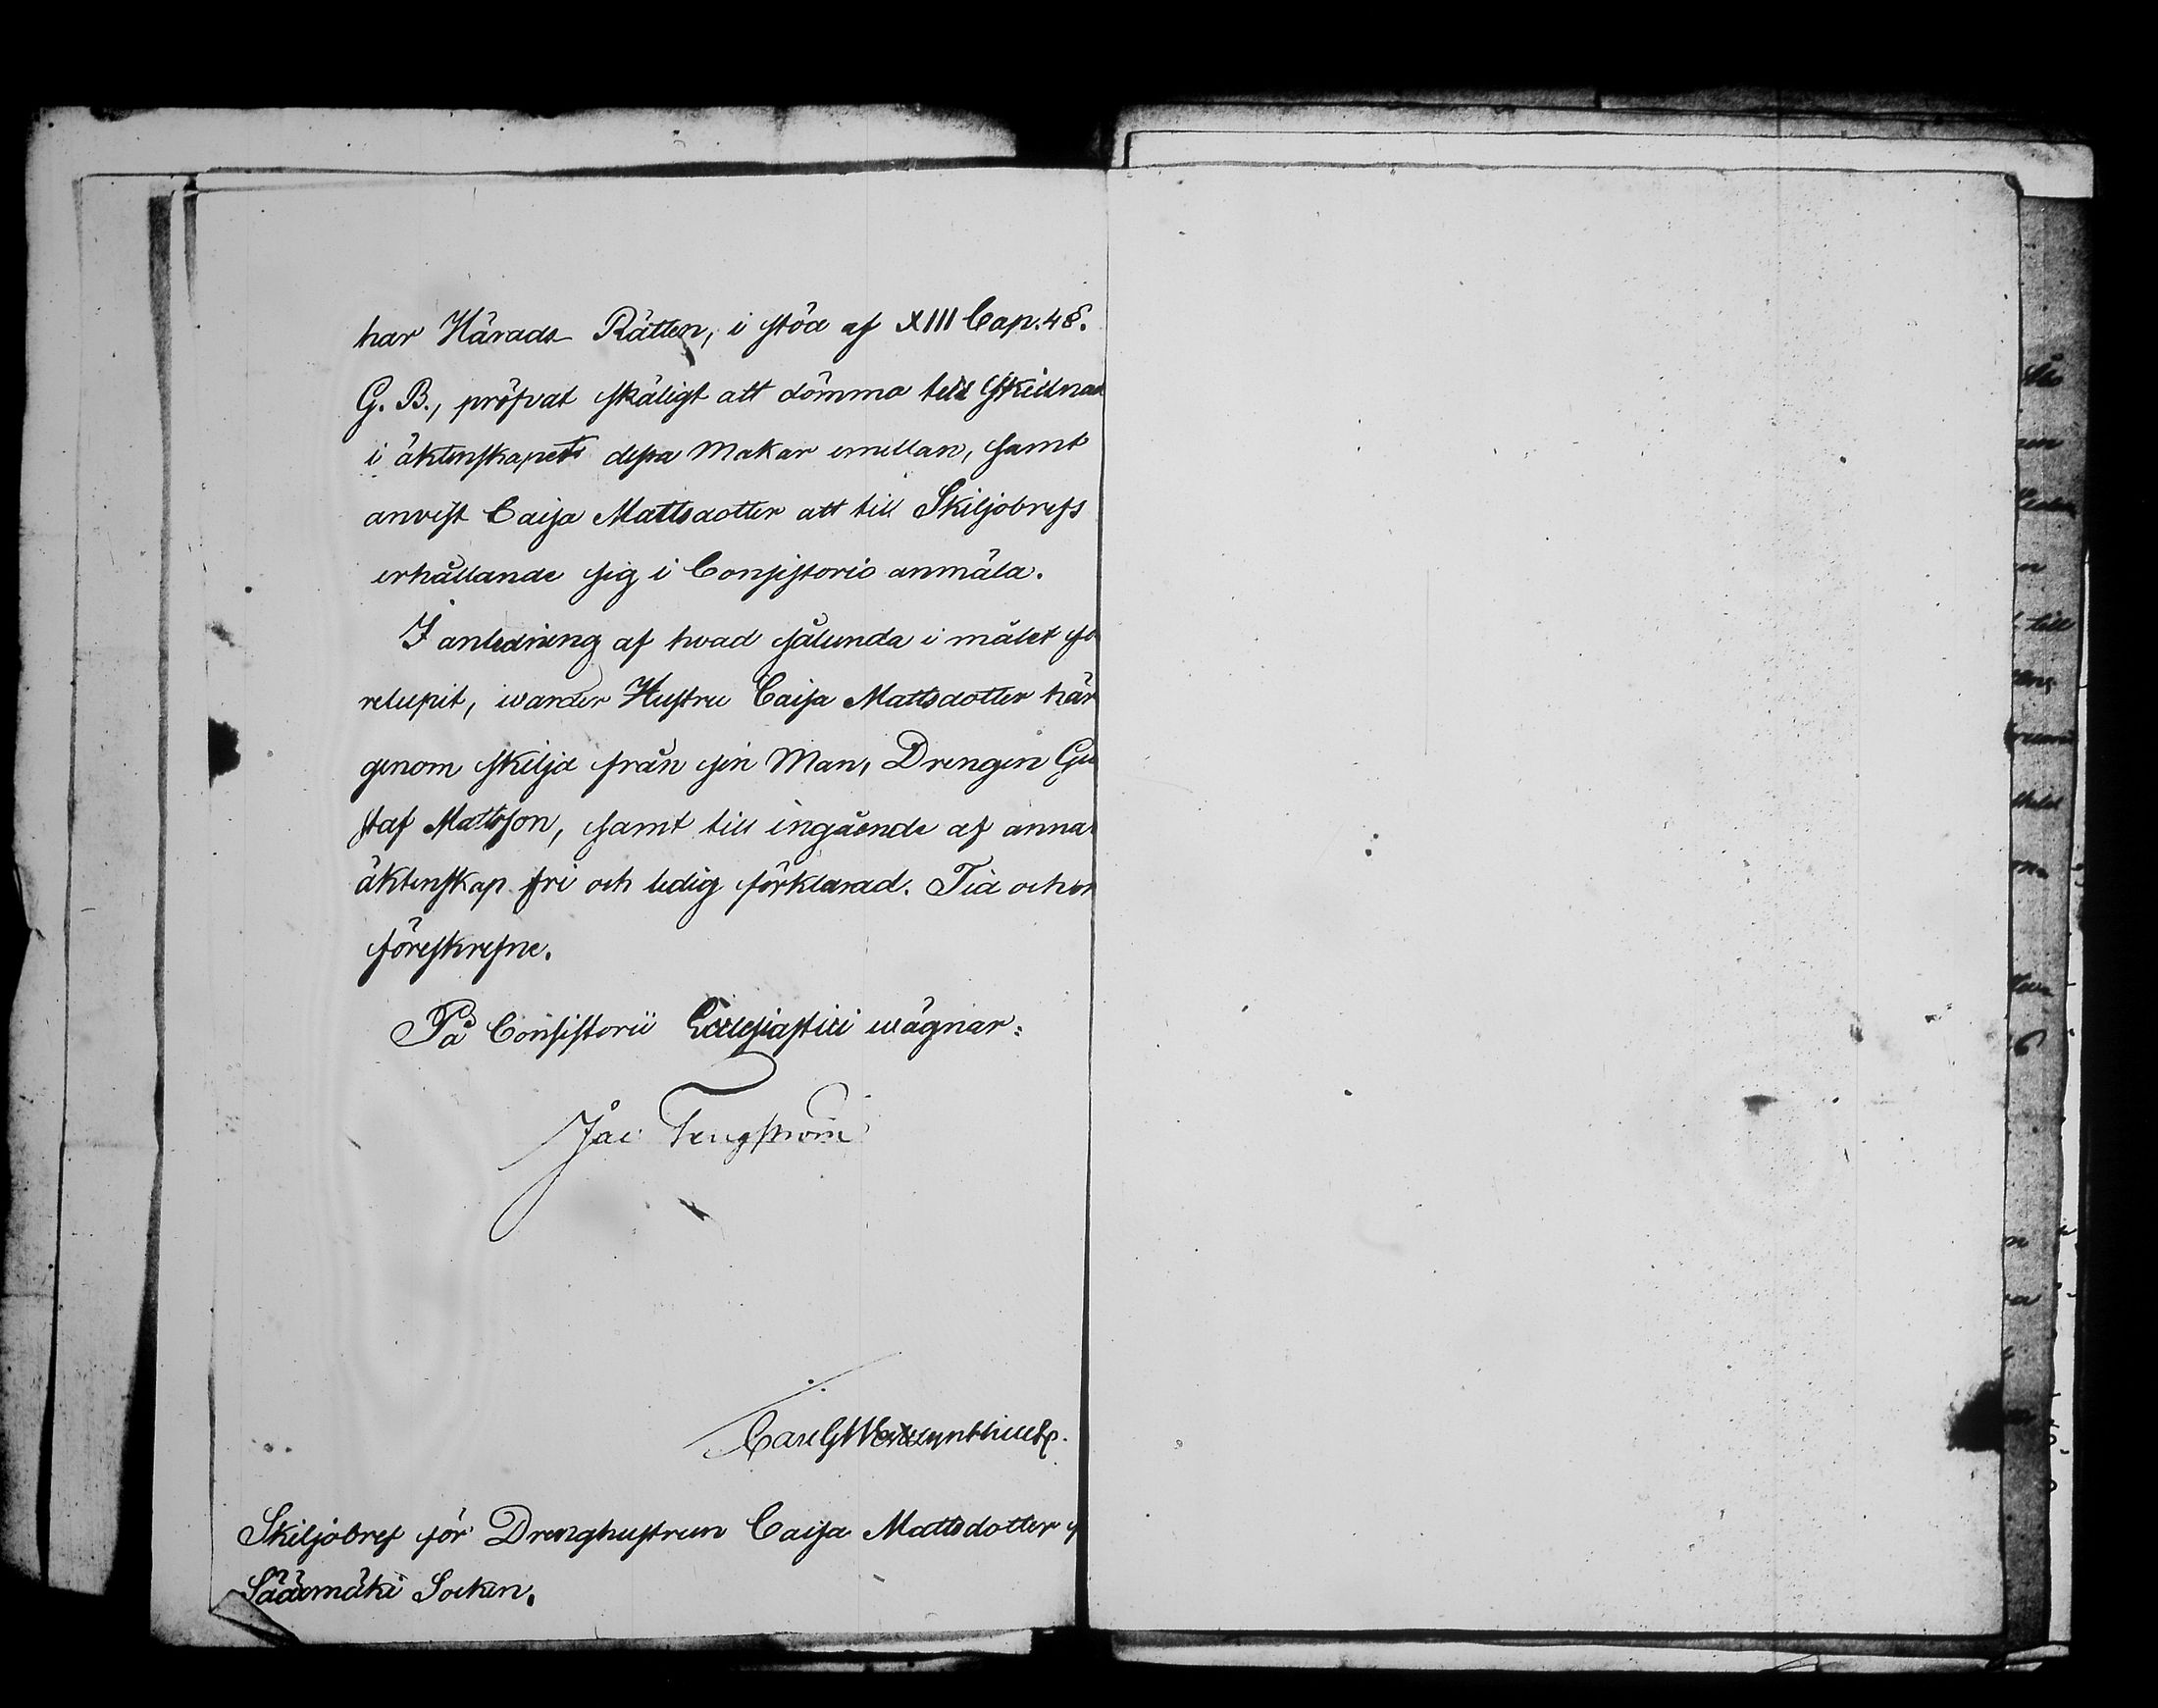 har Härads Rätten, i stöd af XIII Cap. 4 §.
G. B., pröfvat skäligt att dömma till Skillnad
i äktenskapet dessa Makar emellan, samt
anvist Caisa Mattsdotter att till Skiljobrefs
erhållande sig i Consistorio anmäla.
I anledning af hvad sålunda i målet fö
relupit, warder Hustru Caisa Mattsdotter här
genom skilja från sin Man, Drengen Gu
staf Mattsson, samt till ingående af annat
äktenskap fri och ledig förklarad. Tid och or
föreskrefne.
På Consistorii Ecclesiastici wägnar:
Jac Tengström
Carl G
Skiljobref för Drenghustrun Caisa Mattsdotter f
Sääxmäki Socken.